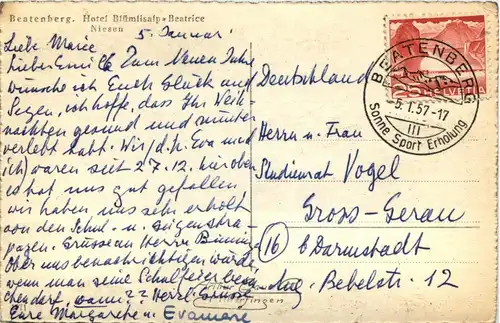 Beatenberg. Hotel Blümlisalp-Beatrice
Niesen
5. Januar
Liebe Marie
Lieber Emil Zum Neuen Jahre
wünsche ich Euch Glück und
Segen, ich hoffe, dass Ihr Weih-
nachten gesund und munter
verlebt habt. Wir/d. Eva und
ich/waren seit 27.12. hier oben
es hat uns gut gefallen
wir haben uns sehr erholt
von den Schul- u. Geigenstra-
pazen. Grüsse an Herrn
Ob er uns benachrichtigen würde,
wenn man seine Schulfeier
wann?? Herzl. Grüsse
Eure Margarethe u. Evamarie
Deutschland
Herrn u. Frau
Studienrat Vogel
Gross-Gerau
(16) b. Darmstadt
Aug. Bebelstr. 12
25 HELVETIA
BEATENBERG
5.1.57-17
III
Sonne Sport Erholung